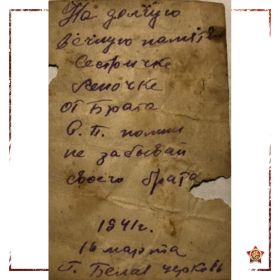 На долгую
вечную память
Сестричке
Леночке
от Брата
С.П. помни
не забывай
своего брата
1941г.
16 марта
г. Белая церковь